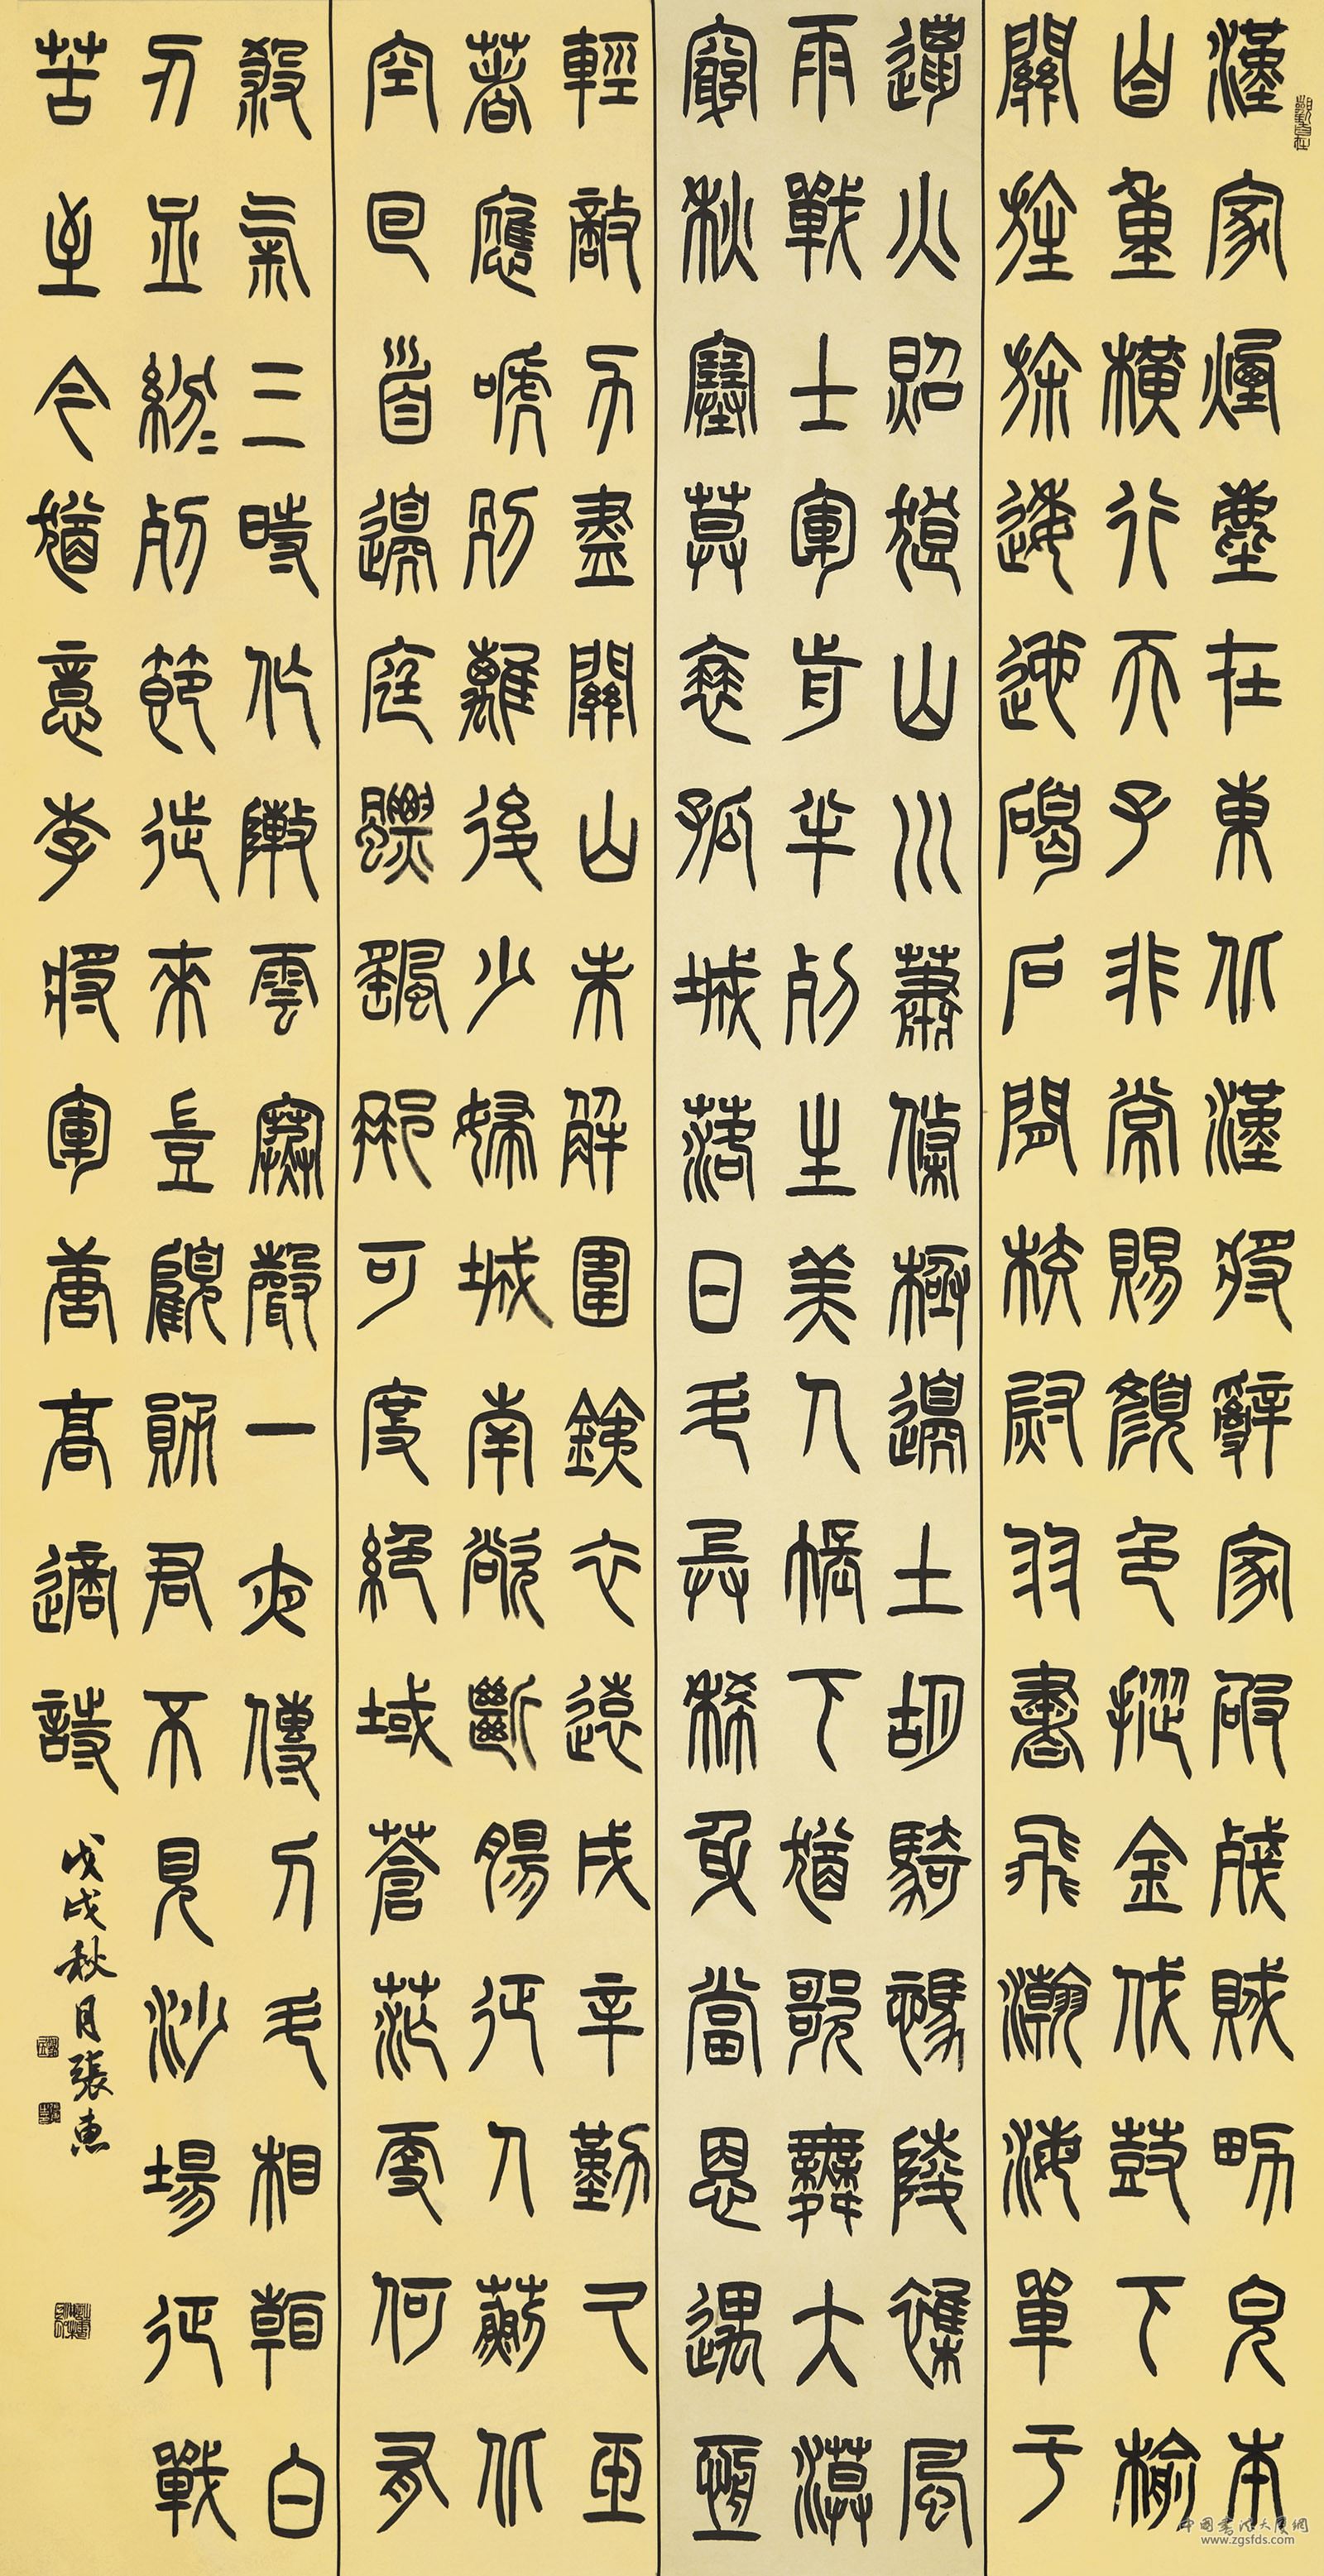 漢家煙塵在東北漢將辭家破殘賊男兒本
自重橫行天子非常賜顏色摐金伐鼓下榆
關旌旆逶迤碣石間校尉羽書飛瀚海單于
獵火照狼山川蕭條極邊土胡騎憑陵雜風
雨戰士軍前半死生美人帳下猶歌舞大漠
窮秋塞草衰孤城落日鬥兵稀身當恩遇恆
輕敵力盡關山未解圍鐵衣遠戍辛勤久玉
箸應啼別離後少婦城南欲斷腸征人薊北
空回首邊庭飄颻那可度絕域蒼茫更何有
殺氣三時作陣雲寒聲一夜傳刁斗相看白
刃血紛紛死節從來豈顧勳君不見沙場征戰
苦至今猶憶李將軍唐高適詩
戊戌秋月張惠
中國書法大展網
www.zgsfds.com